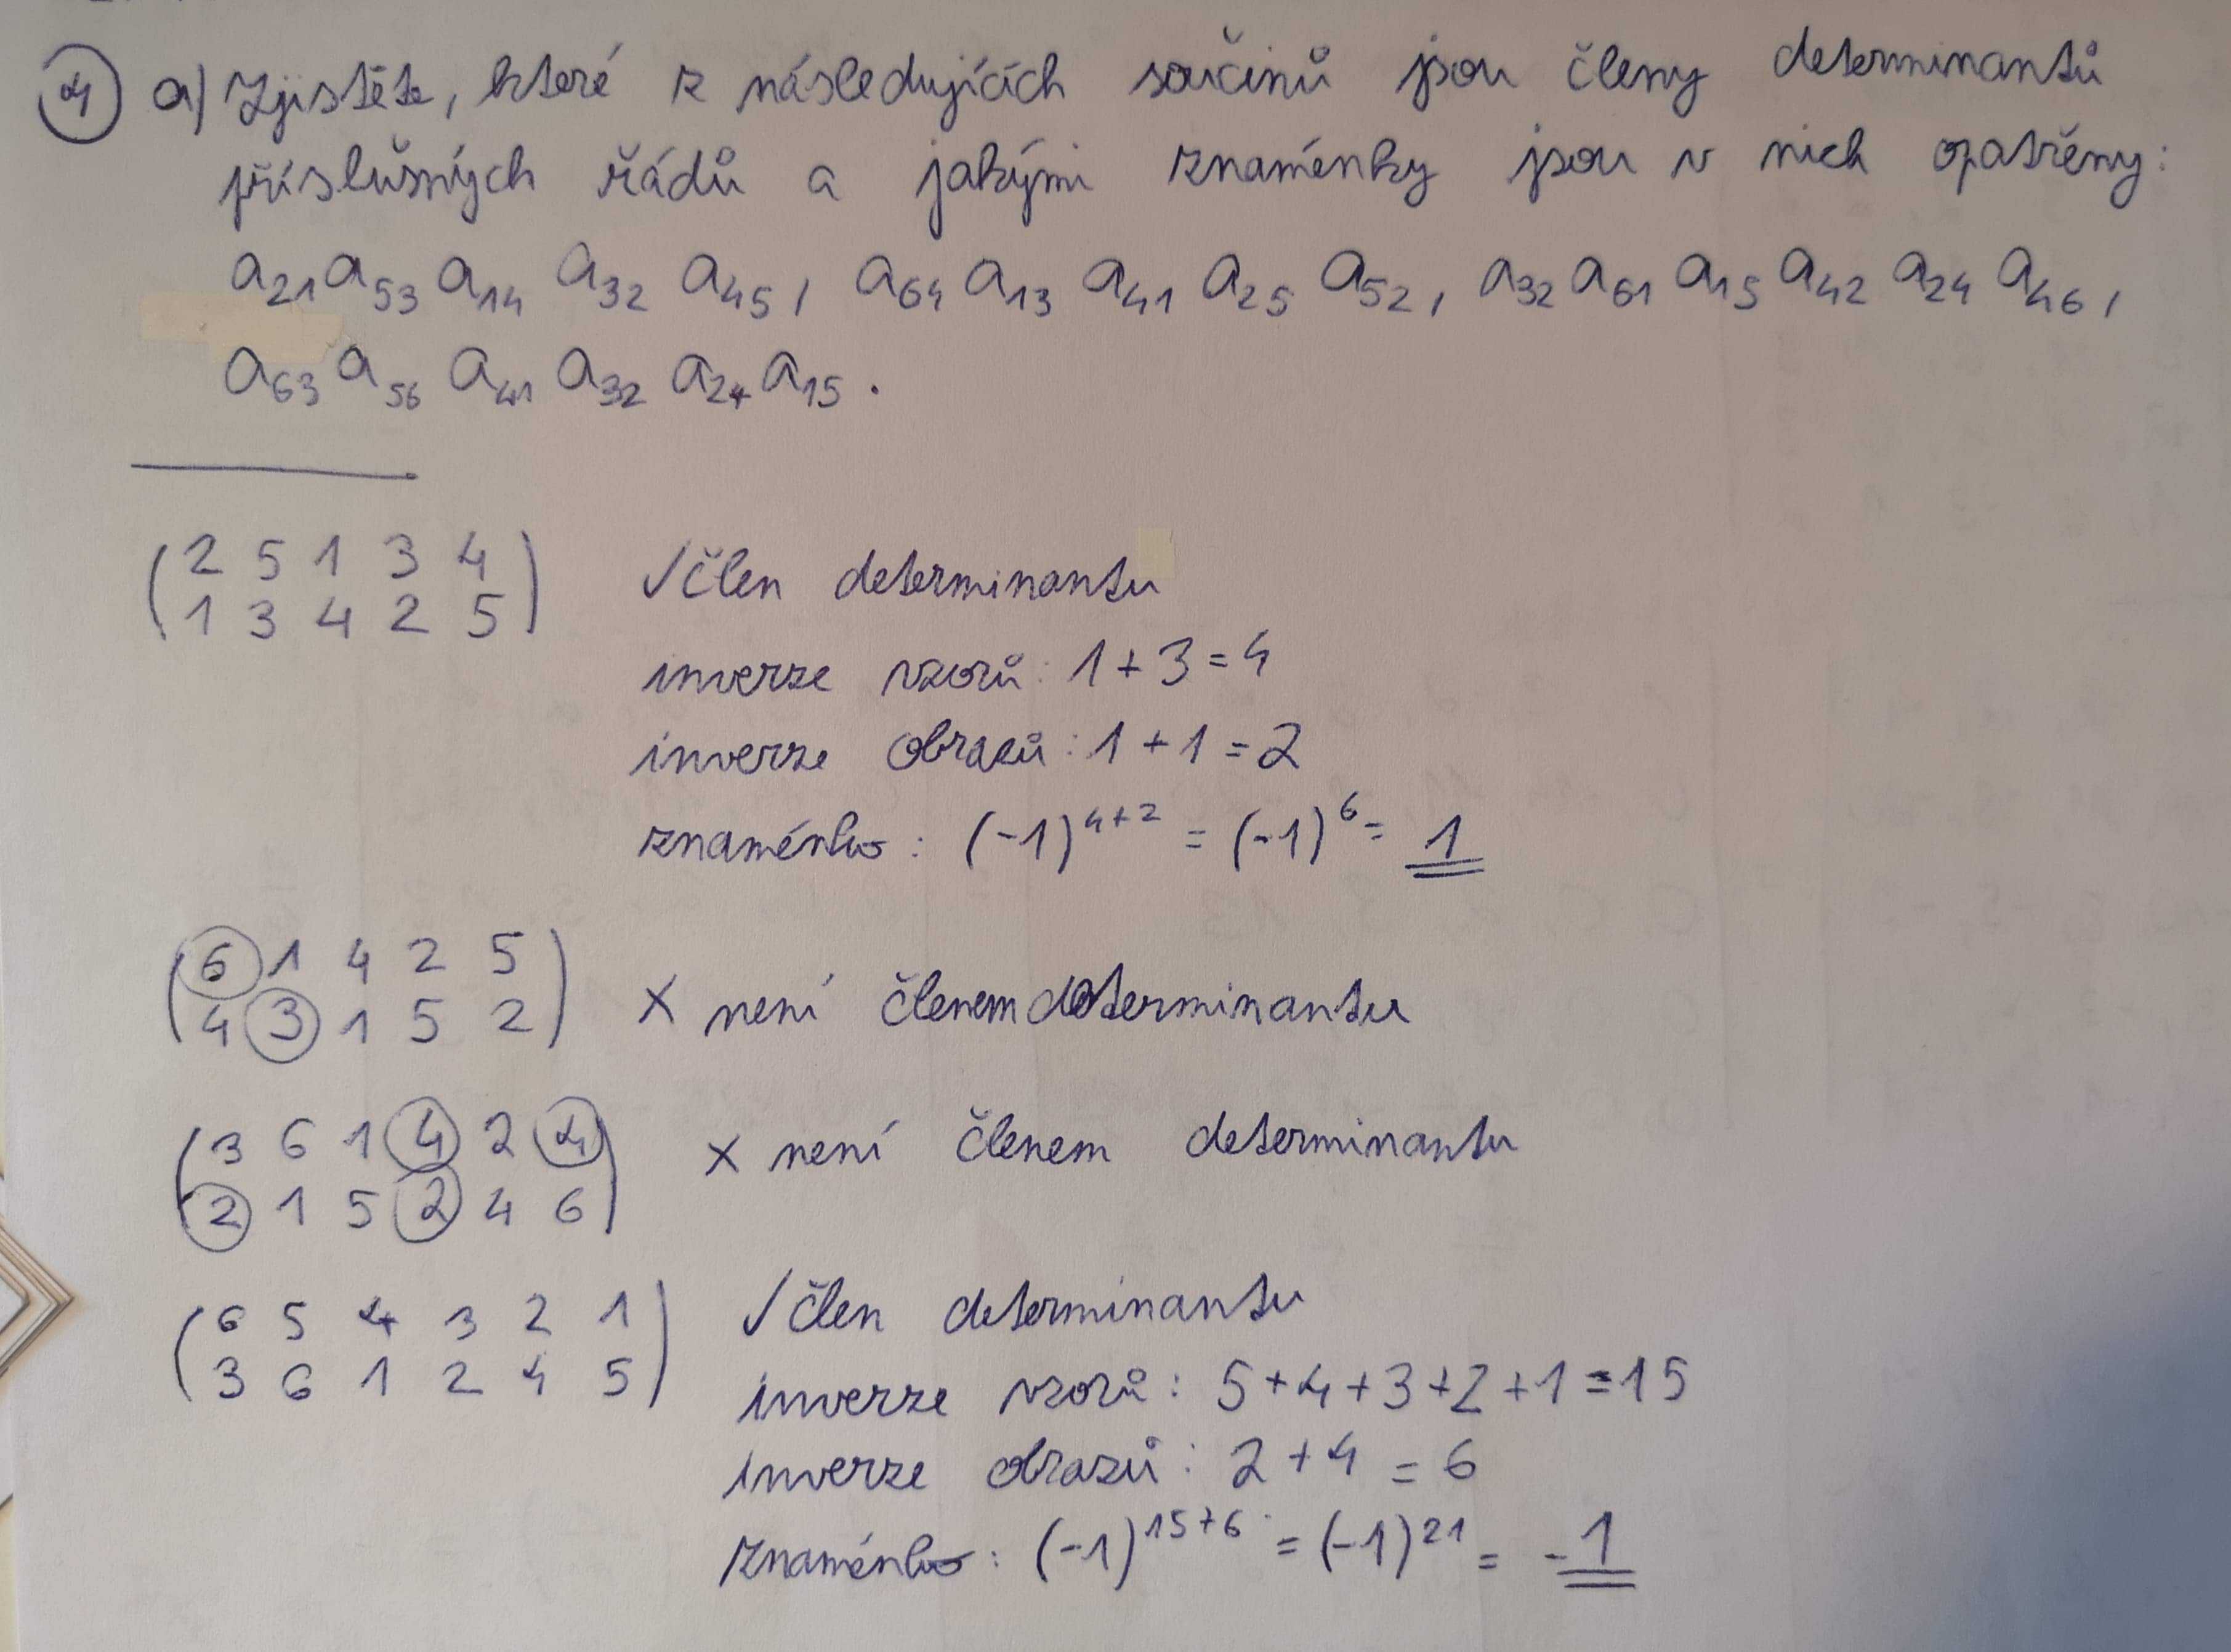 4 a) Zjistěte, které z následujících součinů jsou členy determinantů
příslušných řádů a jakými znaménky jsou v nich opatřeny:
a21 a53 a14 a32 a45, a64 a13 a41 a25 a52, a32 a61 a15 a42 a24 a46,
a63 a56 a41 a32 a24 a15.
(2 5 1 3 4)
(1 3 4 2 5)
✓ člen determinantu
inverze vzorů: 1+3=4
inverze obrazů: 1+1=2
znaménko: (-1)^4+2 = (-1)^6 = 1
(6 1 4 2 5)
(4 3 1 5 2)
× není členem determinantu
(3 6 1 4 2 4)
(2 1 5 2 4 6)
× není členem determinantu
(6 5 4 3 2 1)
(3 6 1 2 4 5)
✓ člen determinantu
inverze vzorů: 5+4+3+2+1=15
inverze obrazů: 2+4=6
znaménko: (-1)^15+6 = (-1)^21 = -1